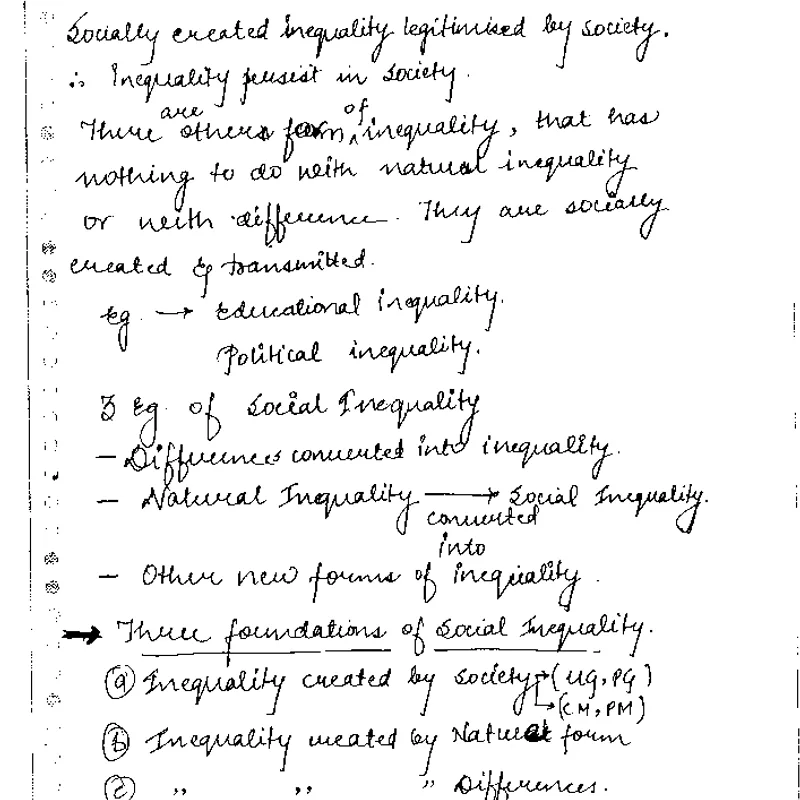 Socially created Inequality legitimised by society.
∴ Inequality persist in society.
There are others form of inequality, that has
nothing to do with natural inequality
or with difference. They are socially
created & transmitted.
Eg. → Educational inequality.
Political inequality.
3 Eg. of Social Inequality
– Differences converted into inequality.
– Natural Inequality → Social Inequality.
converted
into
– Other new forms of inequality.
→ Three foundations of Social Inequality.
(a) Inequality created by society → (UG, PG)
→ (CM, PM)
(b) Inequality created by Natural form
(c) ,, ,, ,, Differences.